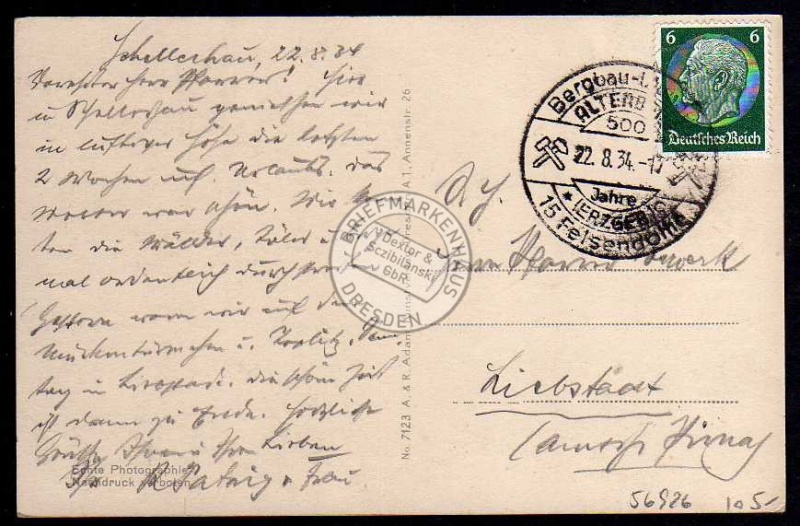 Schellerhau, 22.8.34
Verehrter Herr Pfarrer! Hier
in Schellerhau genießen wir
in luftiger Höhe die letzten
2 Wochen uns. Urlaubs. Das
Wetter war schön. Wir
ten die Wälder, Täler u.
mal ordentlich durch
Gestern waren wir auf dem
Mückentürmchen u. Teplitz,
tag in Die schöne Zeit
ist dann zu Ende. Herzliche
Grüße Ihnen u. Ihren Lieben
u. Frau
Echte Photographie
Nachdruck verboten
No. 7123 A. & R. Adam, A 1, Annenstr. 26
BRIEFMARKENHAUS
Dextor &
Sczibilanski
GbR.
DRESDEN
6 6
Deutsches Reich
Bergbau-
ALTENB
500
22.8.34.-17
Jahre
(ERZGEB)
15 Felsendome
Herrn Pfarrer
Liebstadt
(Amtsh. Pirna)
56926 10 5-